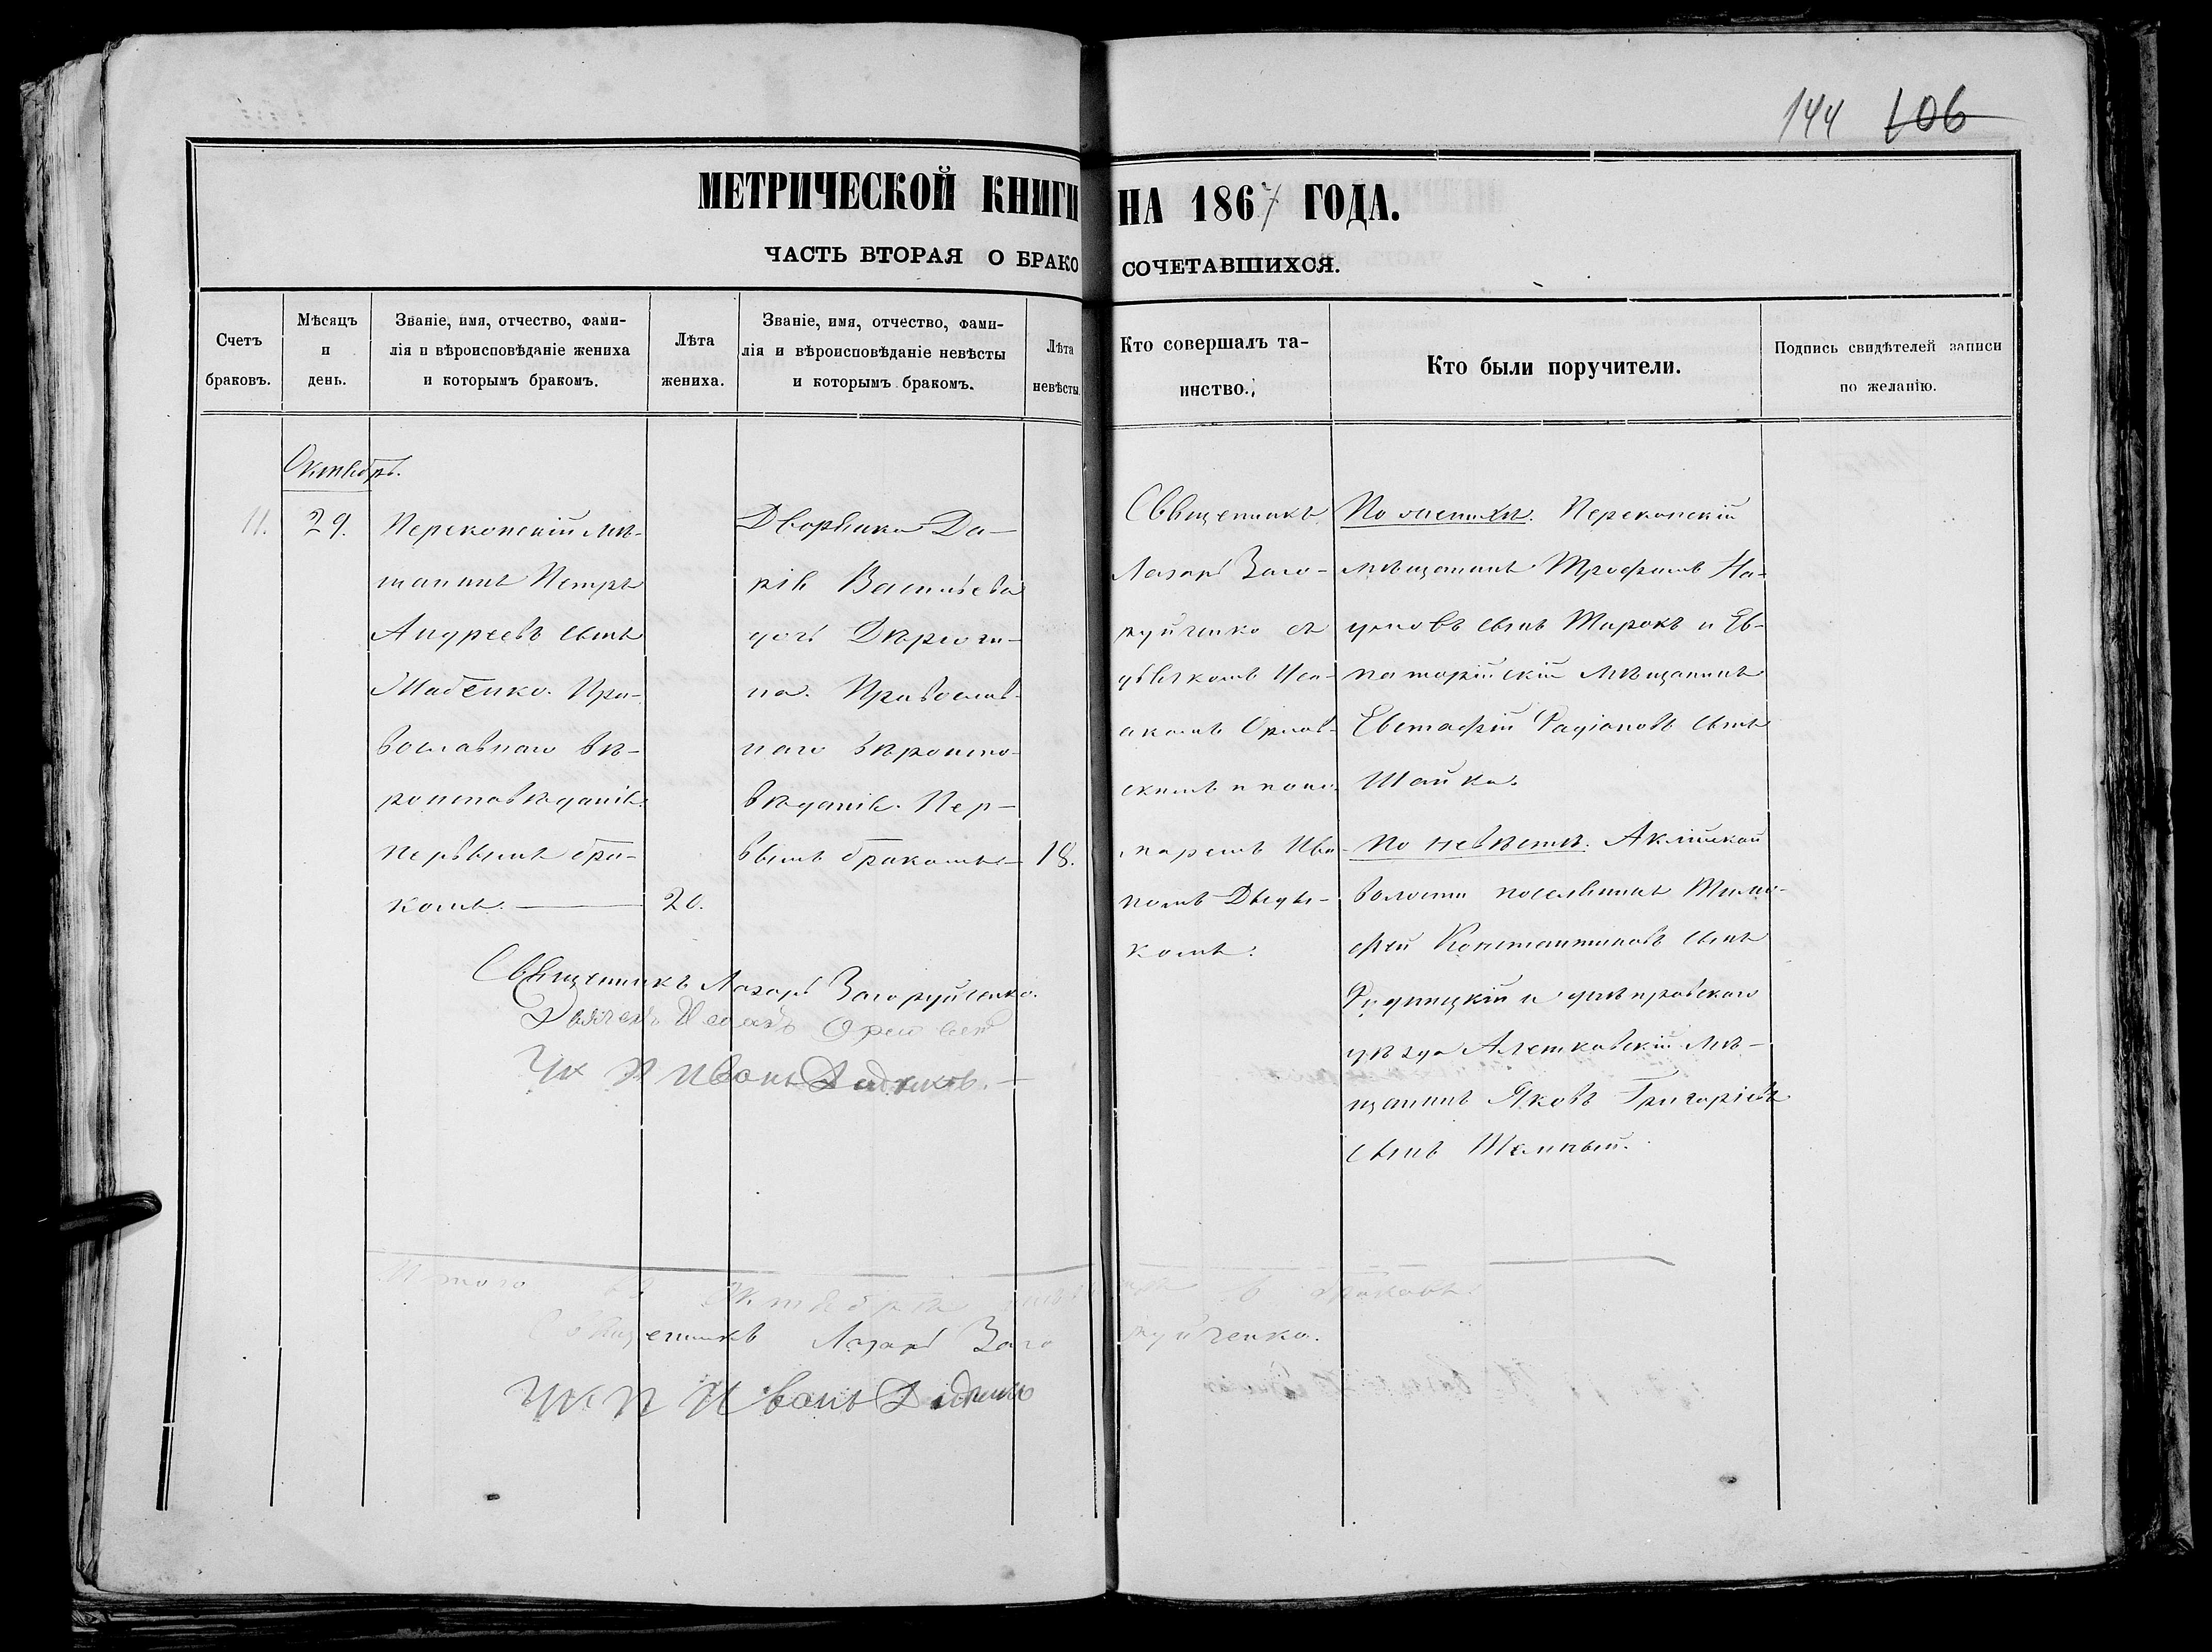 144 106
МЕТРИЧЕСКОЙ КНИГИ НА 1867 ГОДА.
ЧАСТЬ ВТОРАЯ О БРАКОСОЧЕТАВШИХСЯ.
Счетъ
браковъ.
Мѣсяцъ
и
день.
Званіе, имя, отчество, фами-
лія и вѣроисповѣданіе жениха
и которымъ бракомъ.
Лѣта
жениха.
Званіе, имя, отчество, фами-
лія и вѣроисповѣданіе невѣсты
и которымъ бракомъ.
Лѣта
невѣсты.
Кто совершалъ та-
инство.
Кто были поручители.
Подпись свидѣтелей записи
по желанію.
Октябрь.
11.
29.
Перекопскій мѣ-
щанинъ Петръ
Андреевъ сынъ
Пра-
вославнаго вѣ-
роисповѣданія
первымъ бра-
комъ.
20.
Дворянка Да-
рія Васильева
дочь
на. Православ-
наго вѣроиспо-
вѣданія. Пер-
вымъ бракомъ
18.
Священникъ
Лазарь Заго-
руйченко съ
дьячкомъ Иса-
акомъ Орлов-
скимъ и поно-
маремъ Ива-
номъ Дыды-
комъ.
По женихѣ. Перекопскій
мѣщанинъ Трофимъ На-
умовъ сынъ Широкъ и Ев-
паторійскій мѣщанинъ
Евстафій Радіоновъ сынъ
Шайка.
По невѣстѣ.
волости поселянинъ Тимо-
фей Константиновъ сынъ
и днѣпровскаго
уѣзда Алешковскій мѣ-
щанинъ Яковъ Григоріевъ
сынъ Темный.
Священникъ Лазарь Загоруйченко.
Дьячекъ Исаакъ
Иванъ
Итого въ Октябрѣ браковъ.
Священникъ Лазарь Загоруйченко.
Иванъ